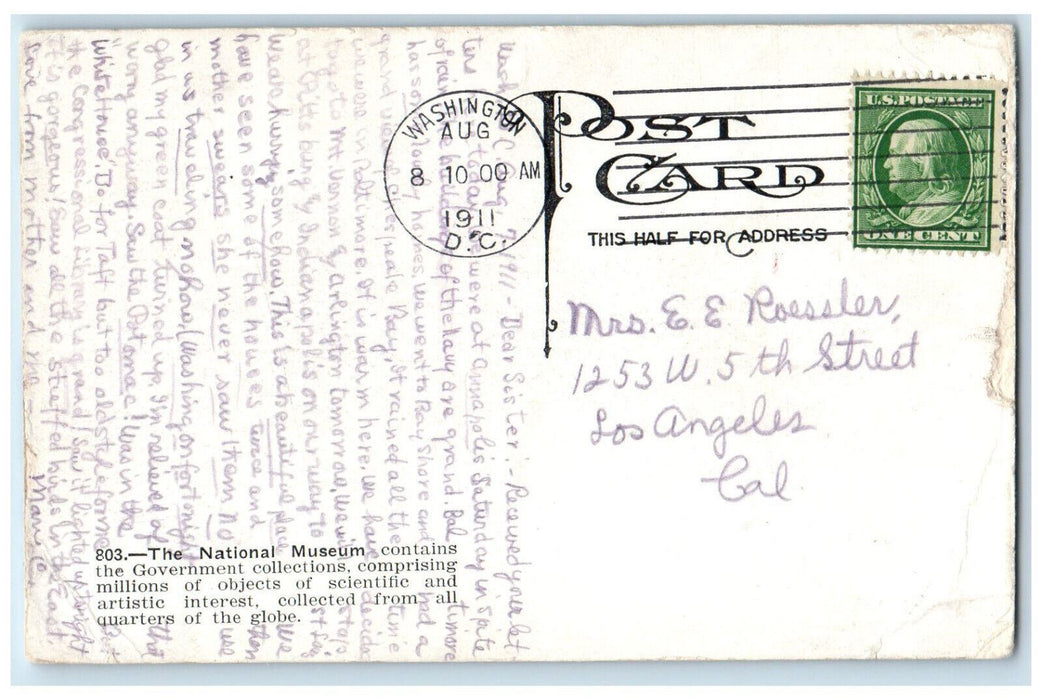 WASHINGTON
AUG
8 10 00 AM
1911
D.C.
POST
CARD
THIS HALF FOR ADDRESS
U.S. POSTAGE
ONE CENT
Mrs. E. E Roessler,
1253 W. 5th Street
Los Angeles
Cal.
803.—The National Museum contains
the Government collections, comprising
millions of objects of scientific and
artistic interest, collected from all
quarters of the globe.
Wash D C Aug 7, 1911 - Dear Sister: - Received your let
ters were at Annapolis Saturday in spite
of rain of the Navy are grand. Bal timore
has so many homes. we went to Bay Shore and had a
grand Bay. It rained all the time
we were in Baltimore. It is warm here. we have decided
to go to Mt Vernon & Arlington tomorrow. we will stop
at Pittsburg & Indianapolis on our way to St Louis
We are hurrying some how. This is a beautiful place we
have seen some of the houses twice and then
mother swears she never saw them. No use
in us trudging no how. (Washington for tonight
gold my green coat turned up. I'm relieved of that
worry anyway. Saw the Potomac! Was in the
White House. Do for Taft but to old style for me. But
the Congressional Library is grand! Saw it lighted up tonight
It is gorgeous! Saw all the stuffed birds in the East.
Love from mother and me -